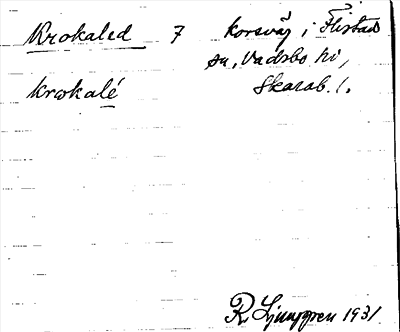 Krokaled 7 korsväg i Flistad
sn, Vadsbo hd,
krokalé Skarab. l.
R. Ljunggren 1931